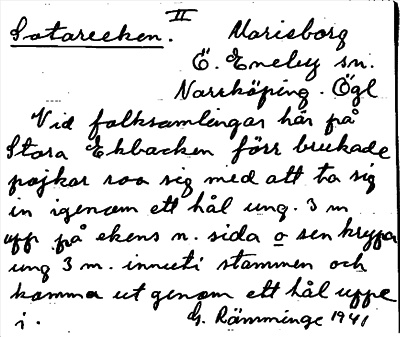 II
Satareeken. Marieborg
Ö. Eneby sn.
Norrköping. Ögl
Vid folksamlingar här på
Stora Ekbacken förr brukade
pojkar roa sig med att ta sig
in igenom ett hål ung. 3 m
upp på ekens n. sida o sen krypa
ung 3 m. inuti stammen och
komma ut genom ett hål uppe
i.
G. Rämminge 1941